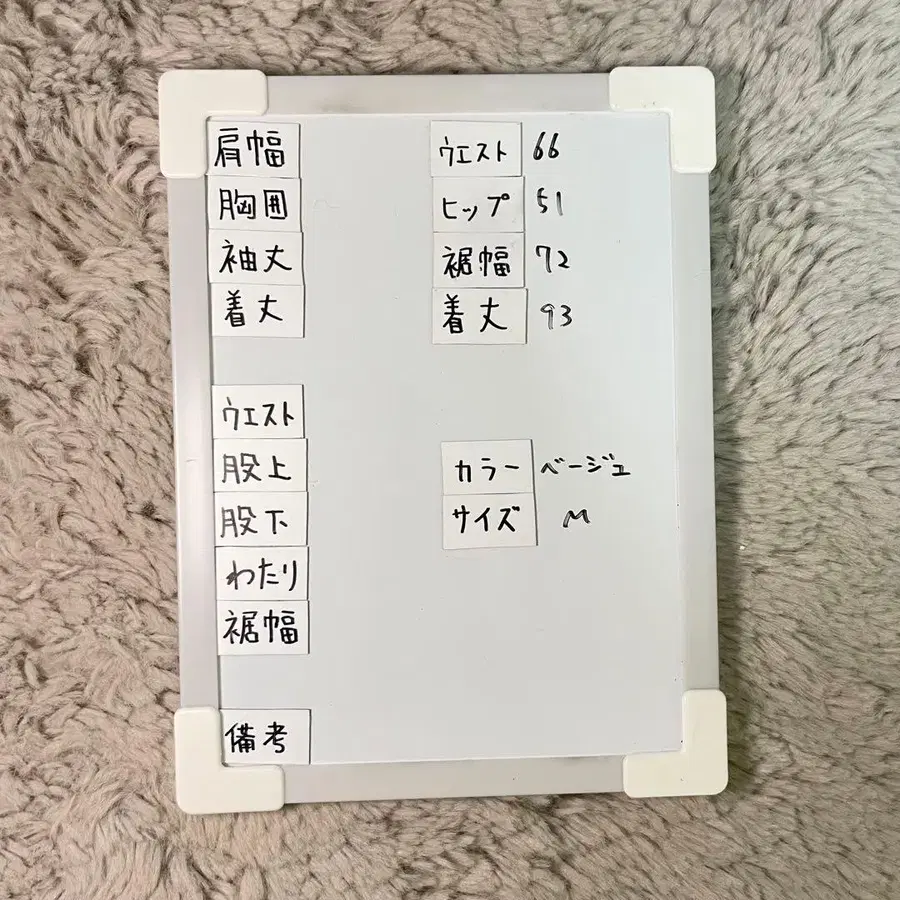 肩幅
胸囲
袖丈
着丈
ウエスト
股上
股下
わたり
裾幅
備考
ウエスト 66
ヒップ 51
裾幅 72
着丈 93
カラー ベージュ
サイズ M